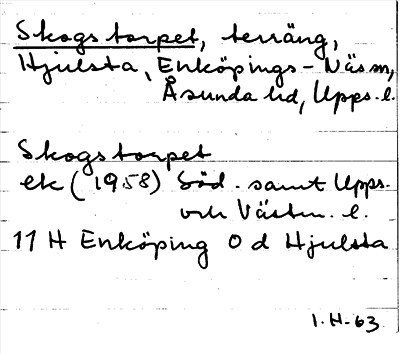 Skogstorpet, terräng,
Hjulsta, Enköpings-Näs sn,
Åsunda hd, Upps. l.
Skogstorpet
ek (1958) Söd. samt Upps.
och Västm. l.
11 H Enköping 0 d Hjulsta
1.H-63